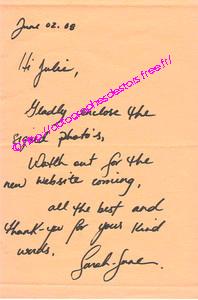 June 02. 08
Hi Julie,
Gladly enclose the
signed photo's,
Watch out for the
new website coming,
all the best and
thank-you for your kind
words,
Sarah-Jane.
http://autographesdestars.free.fr/